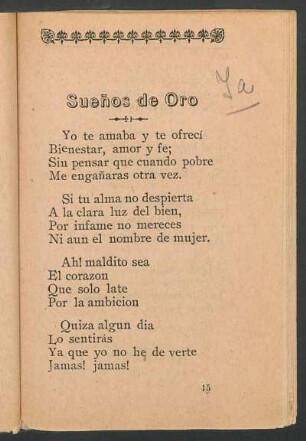 Sueños de Oro
Ya
Yo te amaba y te ofrecí
Bienestar, amor y fe;
Sin pensar que cuando pobre
Me engañaras otra vez.
Si tu alma no despierta
A la clara luz del bien,
Por infame no mereces
Ni aun el nombre de mujer.
Ah! maldito sea
El corazon
Que solo late
Por la ambicion
Quiza algun dia
Lo sentirás
Ya que yo no he de verte
Jamas! jamas!
15